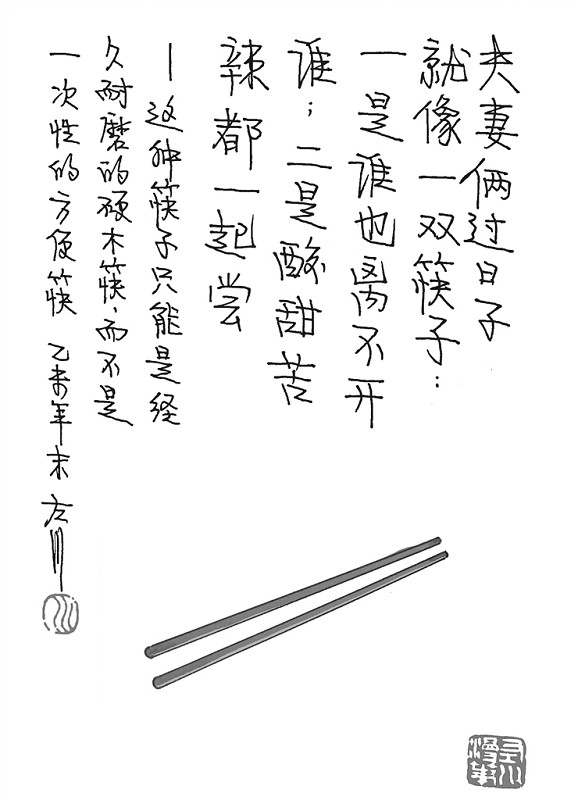 夫妻俩过日子
就像一双筷子：
一是谁也离不开
谁；二是酸甜苦
辣都一起尝
—这种筷子只能是经
久耐磨的硬木筷，而不是
一次性的方便筷 乙未年末